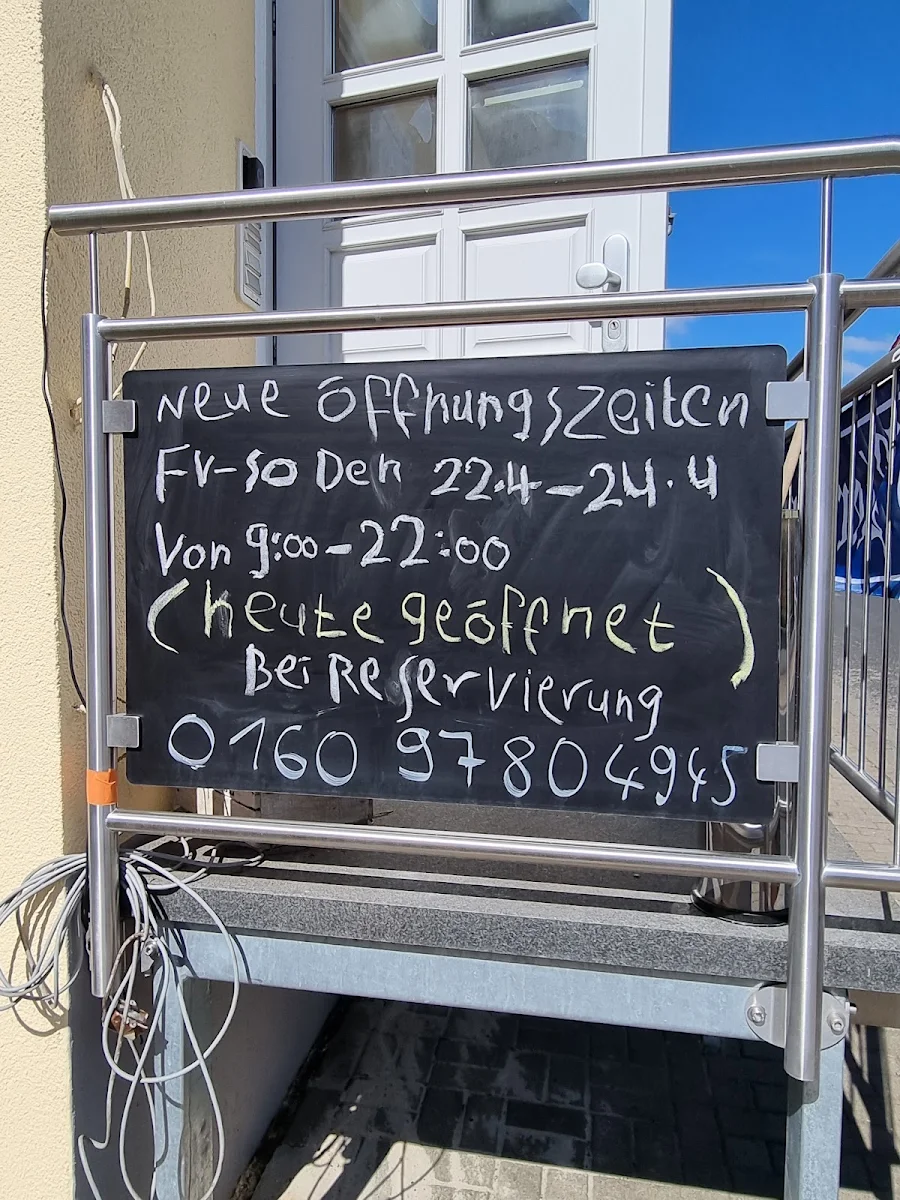 Neue Öffnungszeiten
Fr-So Den 22.4-24.4
Von 9:00-22:00
(heute geöffnet)
Bei Reservierung
0160 97804945